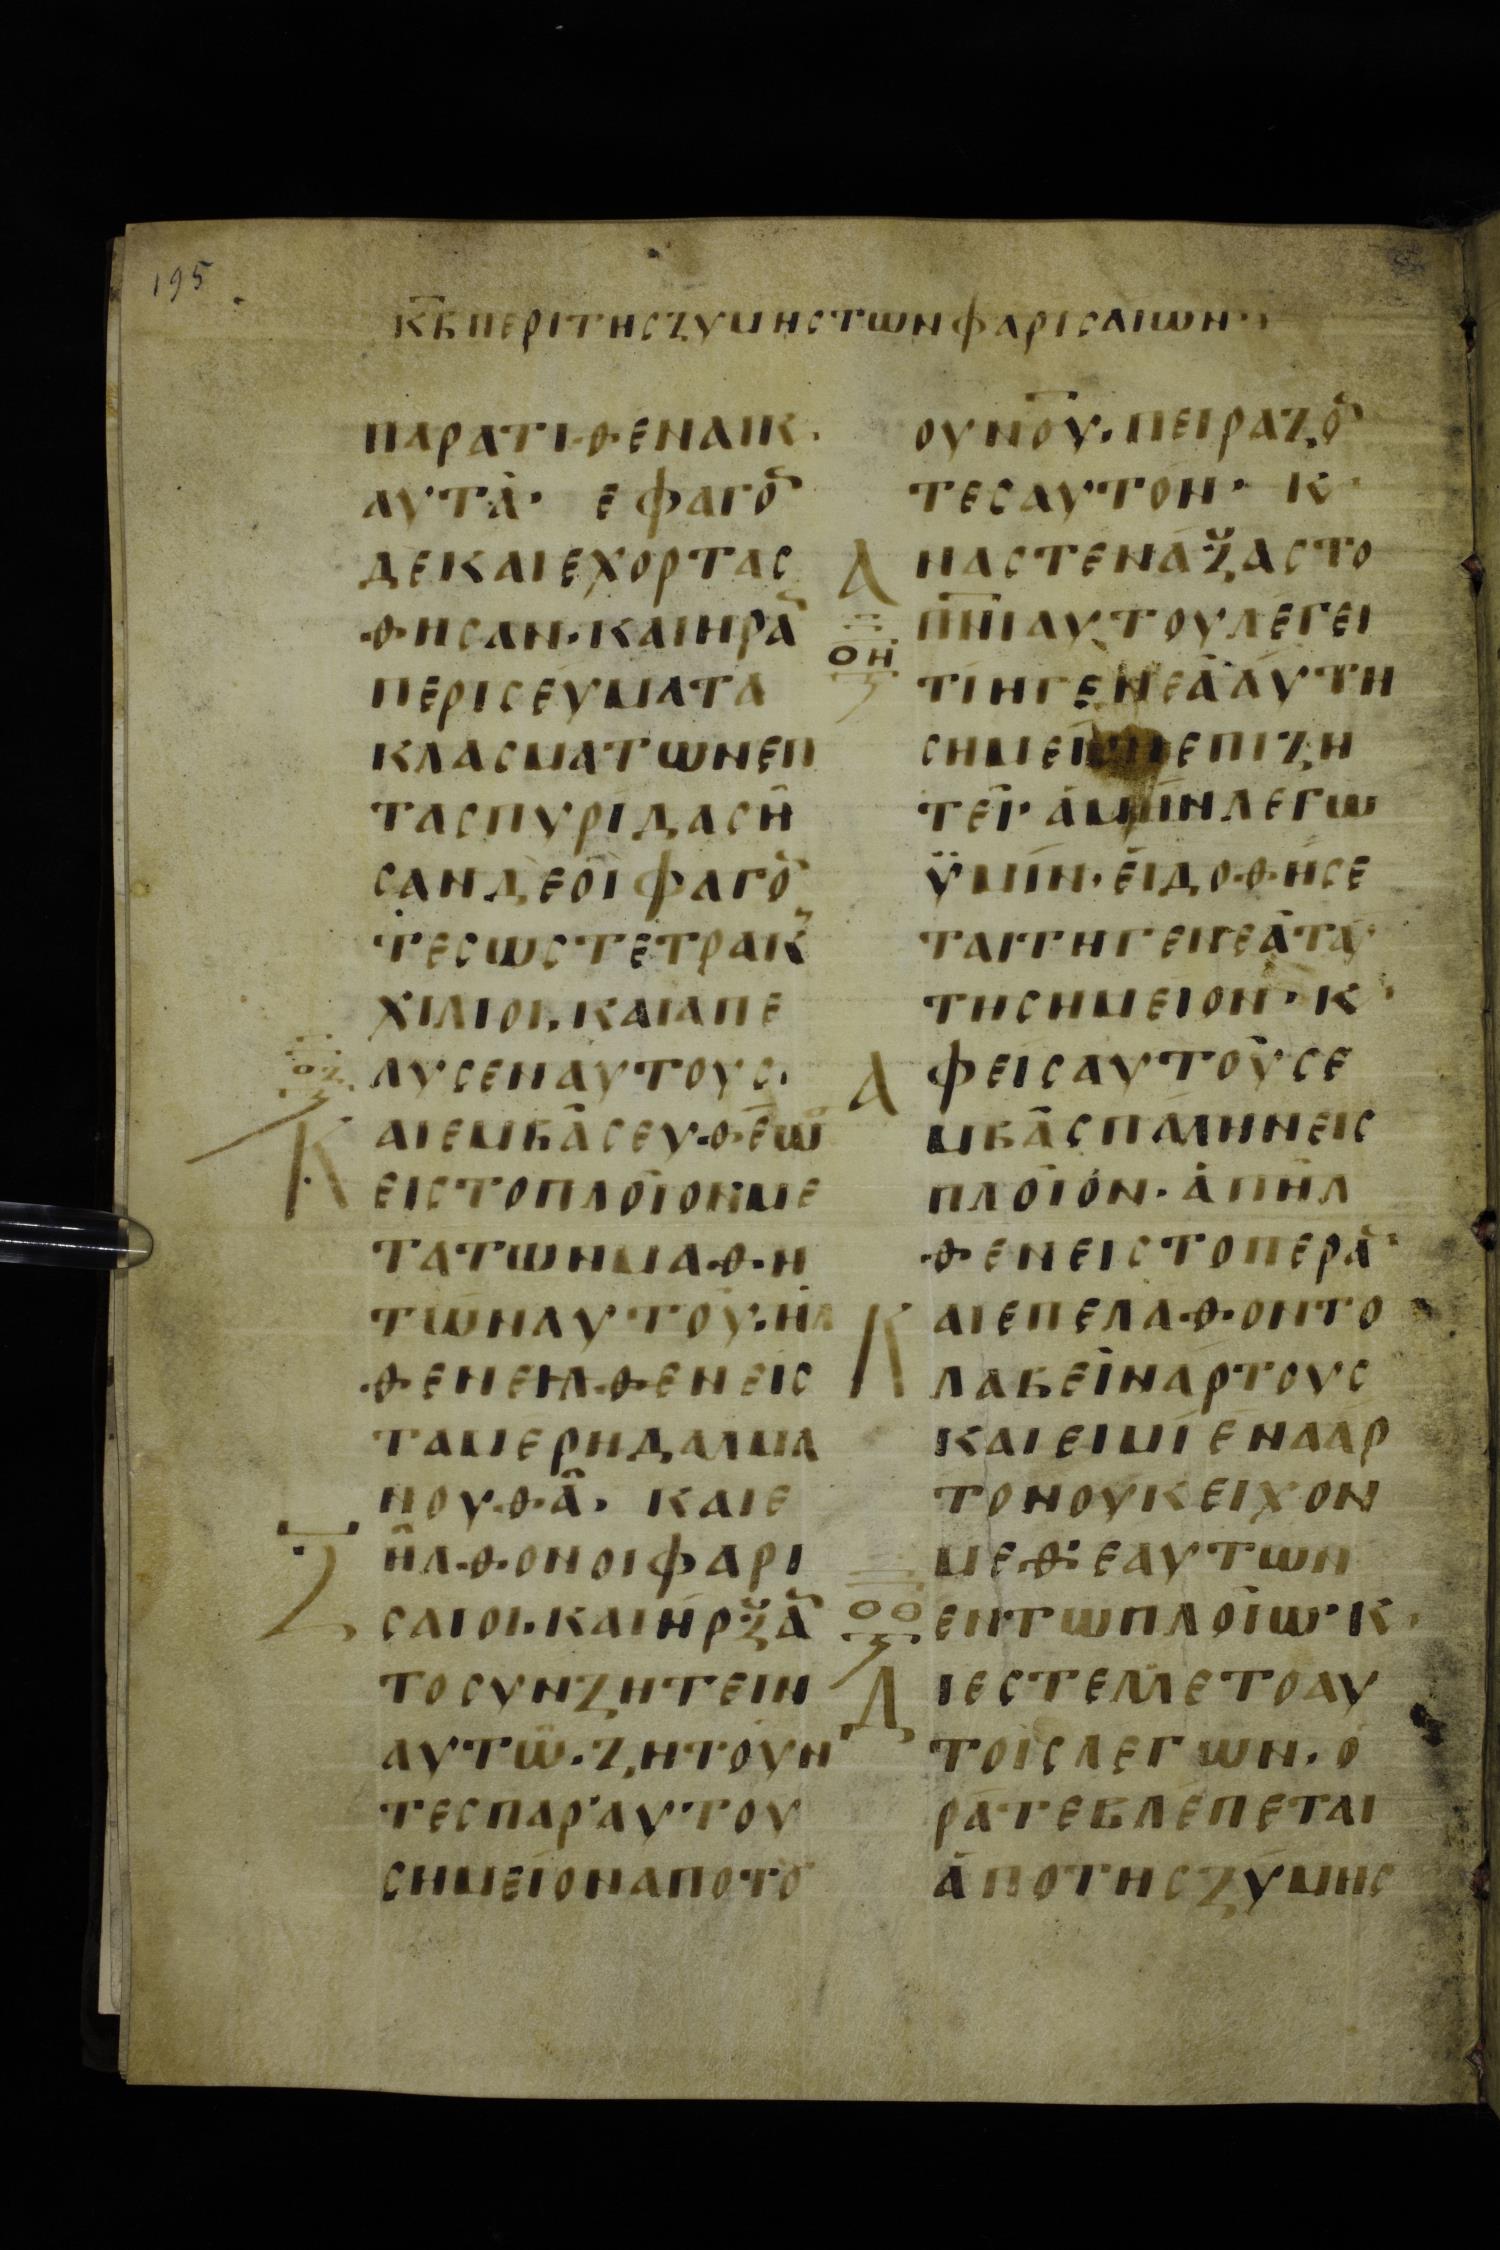 195
κ̅β̅ περιτησζυμηστωνφαρισαιων·
παρατιθεναικ·
αυτὰ· εφαγο̅
δεκαιεχορτας
θησαν·καιηρα̅
περισεύματα
κλασματωνεπ
τασπυρίδασῆ
σανδεοἱφαγο̅
τεσωστετρακ
χιλιοι·καιαπε
ο̅ζ̅
λυσεναυτους·
Καιεμβὰσευθεω̅
ειστοπλοῖονμε
τατωνμαθη
τῶναυτοῦ·ηλ
θενενλθενεις
ταμερηδαλμα
νουθὰ· καιε
ξ
ῆλθονοιφαρι
σαιοι·καιήρξα̅
τοσυνζητειν
αυτῶ·ζητοῦν
τεσπαρ'αυτου
σημεῖοναποτο̅
ουν̅ο̅υ̅·πειραζο̅
τεσαυτον· κ·
Αναστενάξαστο
ο̅η̅
π̅ν̅ιαυτουλέγει
τίηγενεὰάυτη
σημειονεπιζη
τεῖ·ἀμηνλεγω
ϋμῖν·ειδοθήσε
ταιτηγενεᾶταυ
τησημειον·κ·
Αφεισαυτοὺσε
μβὰσπάλινεις
πλοῖόν·ἀπῆλ
θενειστοπερα̅·
Καιεπελαθοντο
λαβεῖνάρτους
καιειμίεναάρ
τονουκειχον
μεθ'εαυτων
ο̅θ̅
εντωπλοῖω·κ·
Διεστέλλετοαυ
τοῖσλεγων·ὁ
ράτεβλέπεται
ἀποτησζύμης